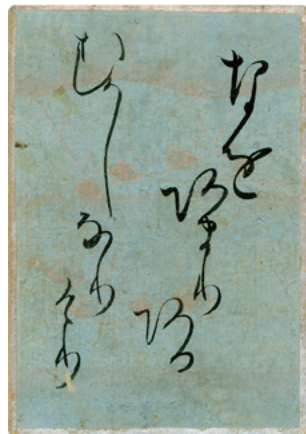 なをあまりある
むかしなりけり